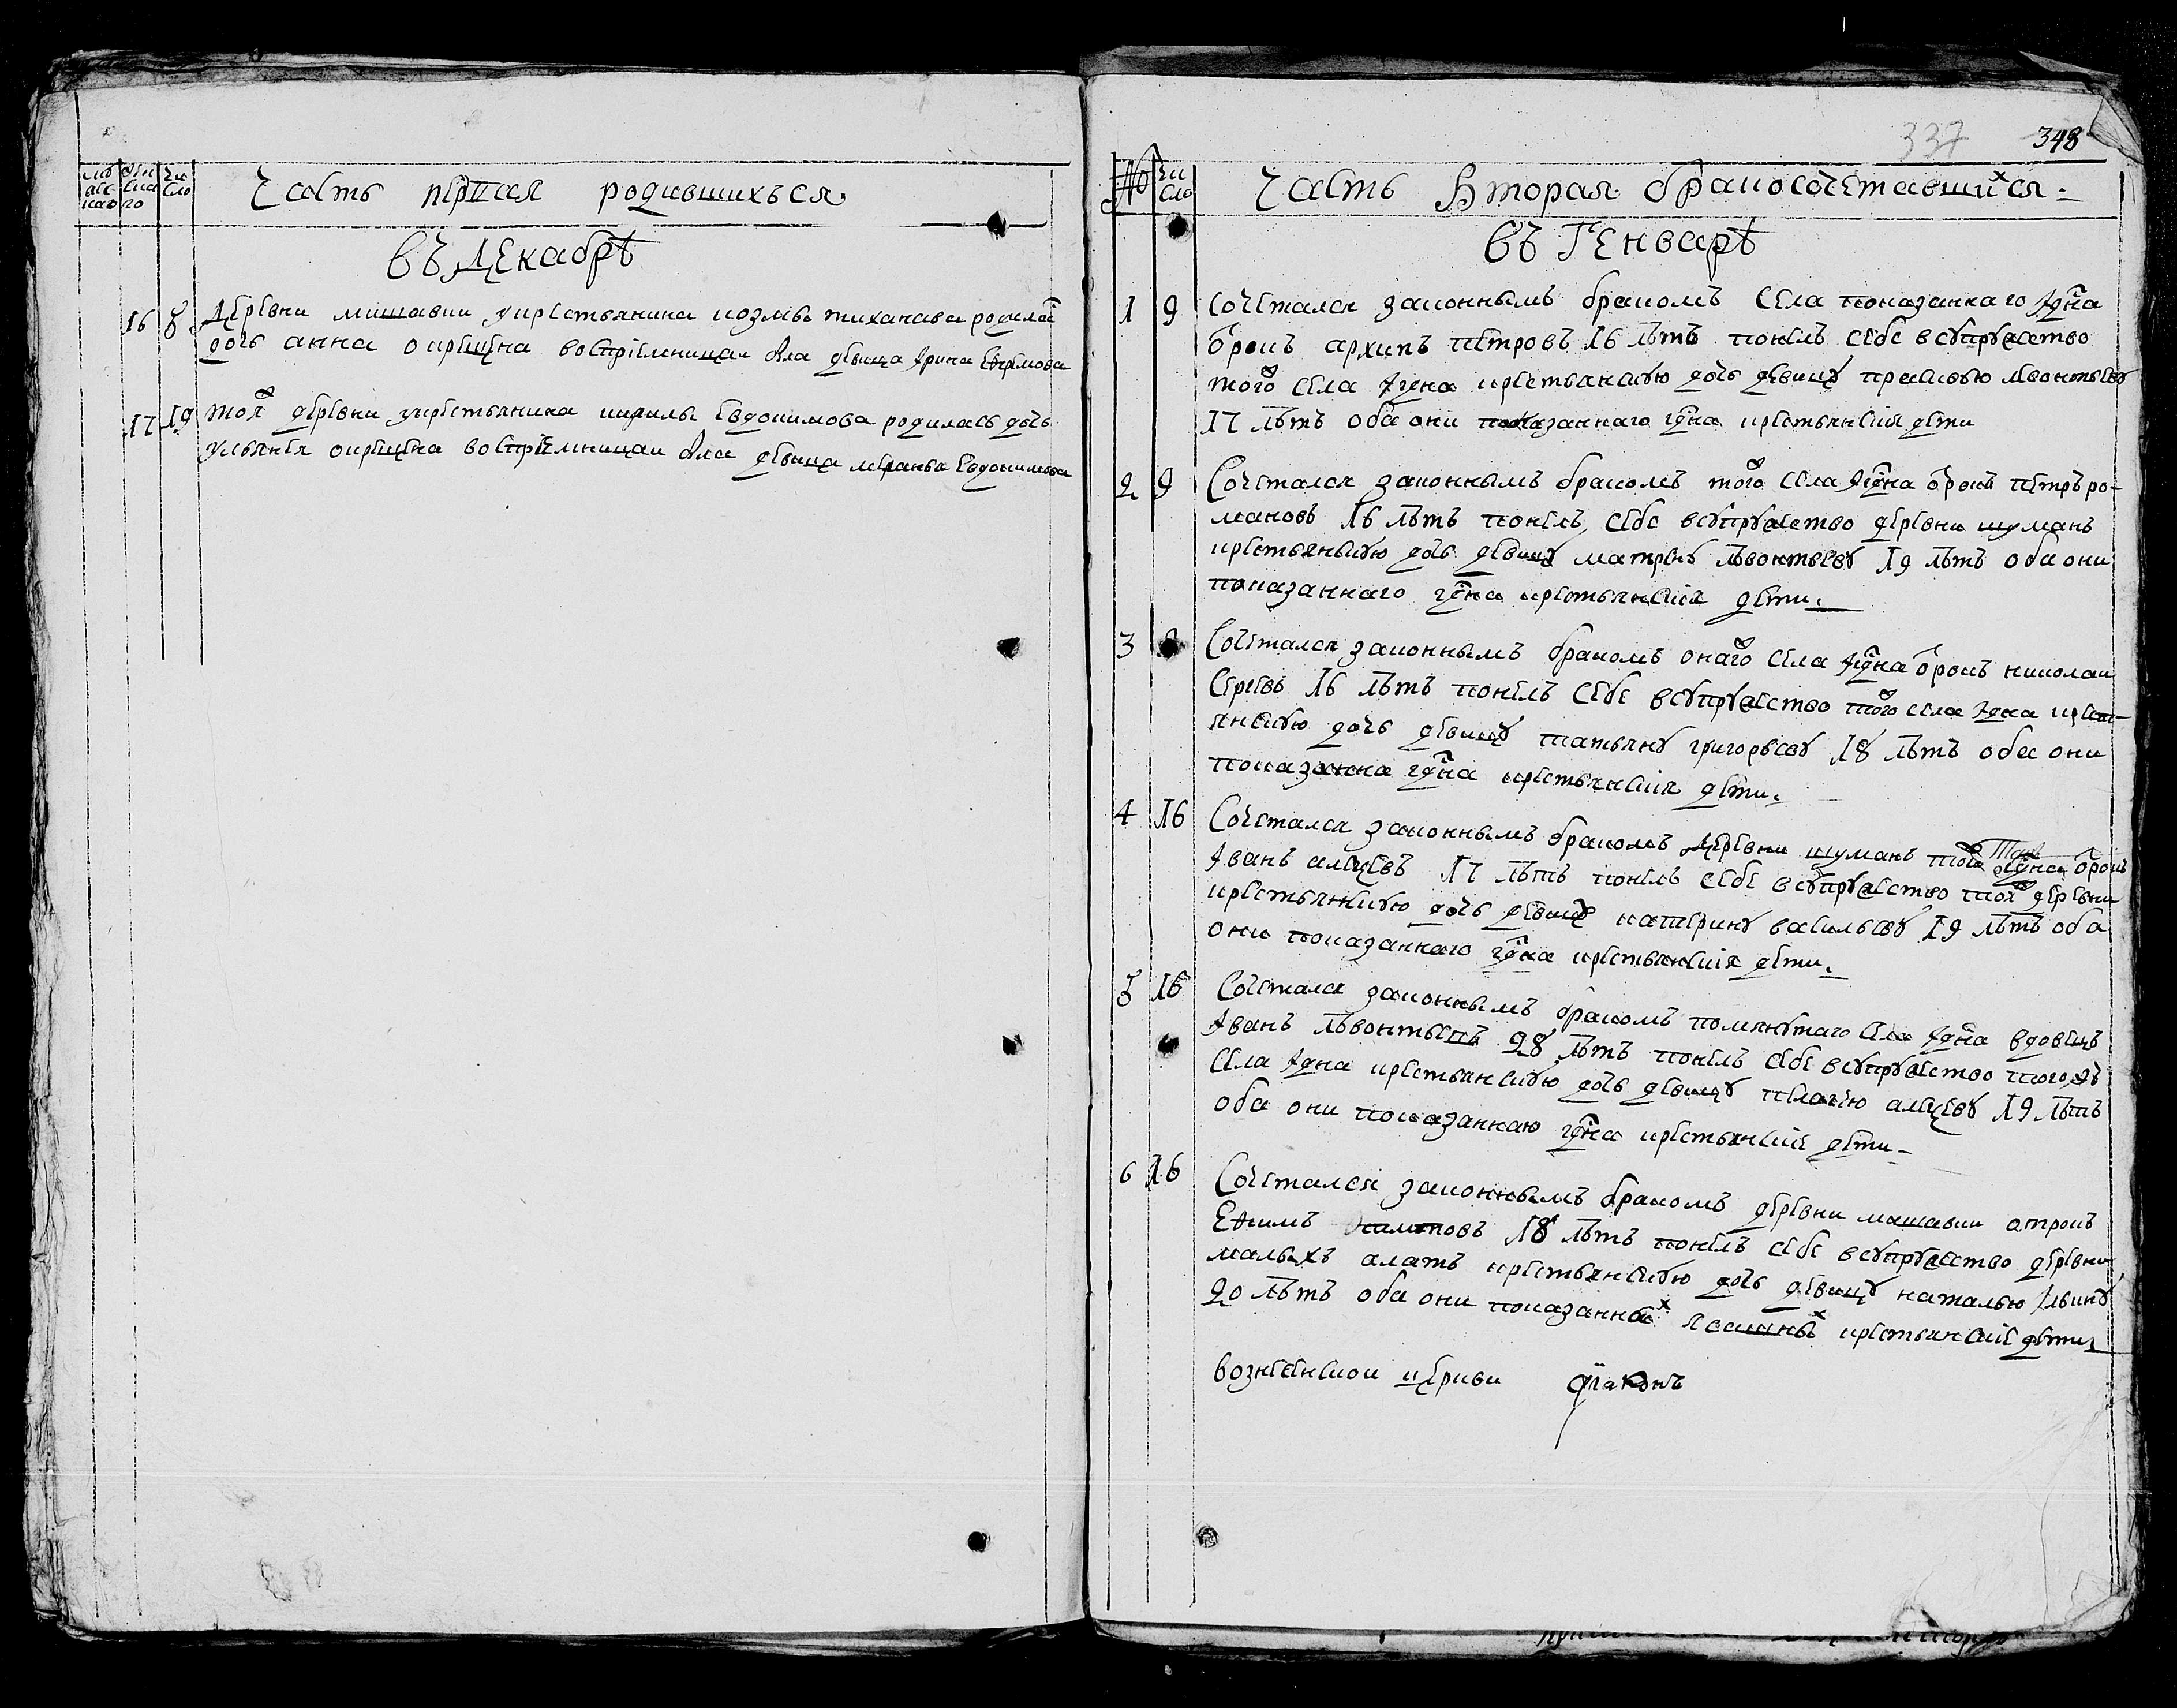 му
жес
каго
жен
ска
го
чи
сло
Часть первая родившихъся
Въ Декабрѣ
16 8 Деревни мишавки укрестьянина козмы тиханава родилас
дочь анна окрещена восприемницаи была девица Ірина Ефремова
17 19 тоя деревни укрестьянина кирилы Евдокимова родилась дочь
ульянея окрещена восприемницаи была девица меланья Евдокимова
337 348
№ чи
сло
Часть Вторая бракосочетавшихся
Въ Генварѣ
1 9 Сочетался законнымъ бракомъ Села показаннаго Ідна
отрокъ архипъ петровъ 16 лѣтъ понелъ себе всупружество
того села Ідна крестьанскую дочь девицу прасковью левонтьеву
17 лѣтъ оба они показаннаго гдна крестьянския дети
2 9 Сочетался законнымъ бракомъ того села Ідна отрокъ петръ ро-
мановъ 16 лѣтъ понелъ себе всупружество деревни шуманъ
крестьянскую дочь девицу матрену лѣвонтьеву 19 лѣтъ оба они
показаннаго гдна крестьянския дети
3 9 Сочетался законнымъ бракомъ онаго села Ідна отрокъ николаи
Сергевъ 16 лѣтъ понелъ себе всупружество того села Ідна крест-
янскую дочь девицу татьяну григорьеву 18 лѣтъ оба они
показанна гдна крестьянския дети
4 16 Сочетался законнымъ бракомъ Деревни шуманъ того гдна отрокъ
Іванъ алексеевъ 17 лѣтъ понелъ себе всупружество тоя деревни
крестьянскую дочь девицу катерину васильеву 19 лѣтъ оба
они показаннаго гдна крестьянския дети
5 16 Сочетался законнымъ бракомъ помянутаго села Ідна вдовецъ
Іванъ лѣвонтьевъ 28 лѣтъ понелъ себе всупружество того жъ
села Ідна крестьянскую дочь девицу пелагію алексееву 19 лѣтъ
оба они показаннаго гдна крестьянские дети
6 16 Сочетался законнымъ бракомъ деревни мишавки отрокъ
Ефимъ 18 лѣтъ понелъ себе всупружество деревни
малыхъ алатъ крестьянскую дочь девицу наталью Ільину
20 лѣтъ оба они показанныхъ ясашныхъ крестьянские дети
вознесенскои церкви дїаконъ